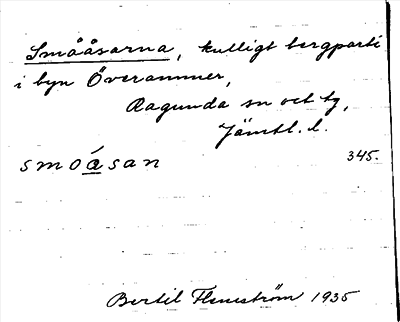 Smååsarna, kulligt bergparti
i byn Överammer,
Ragunda sn och tg,
Jämtl. l.
smoásan 345.
Bertil Flemström 1935